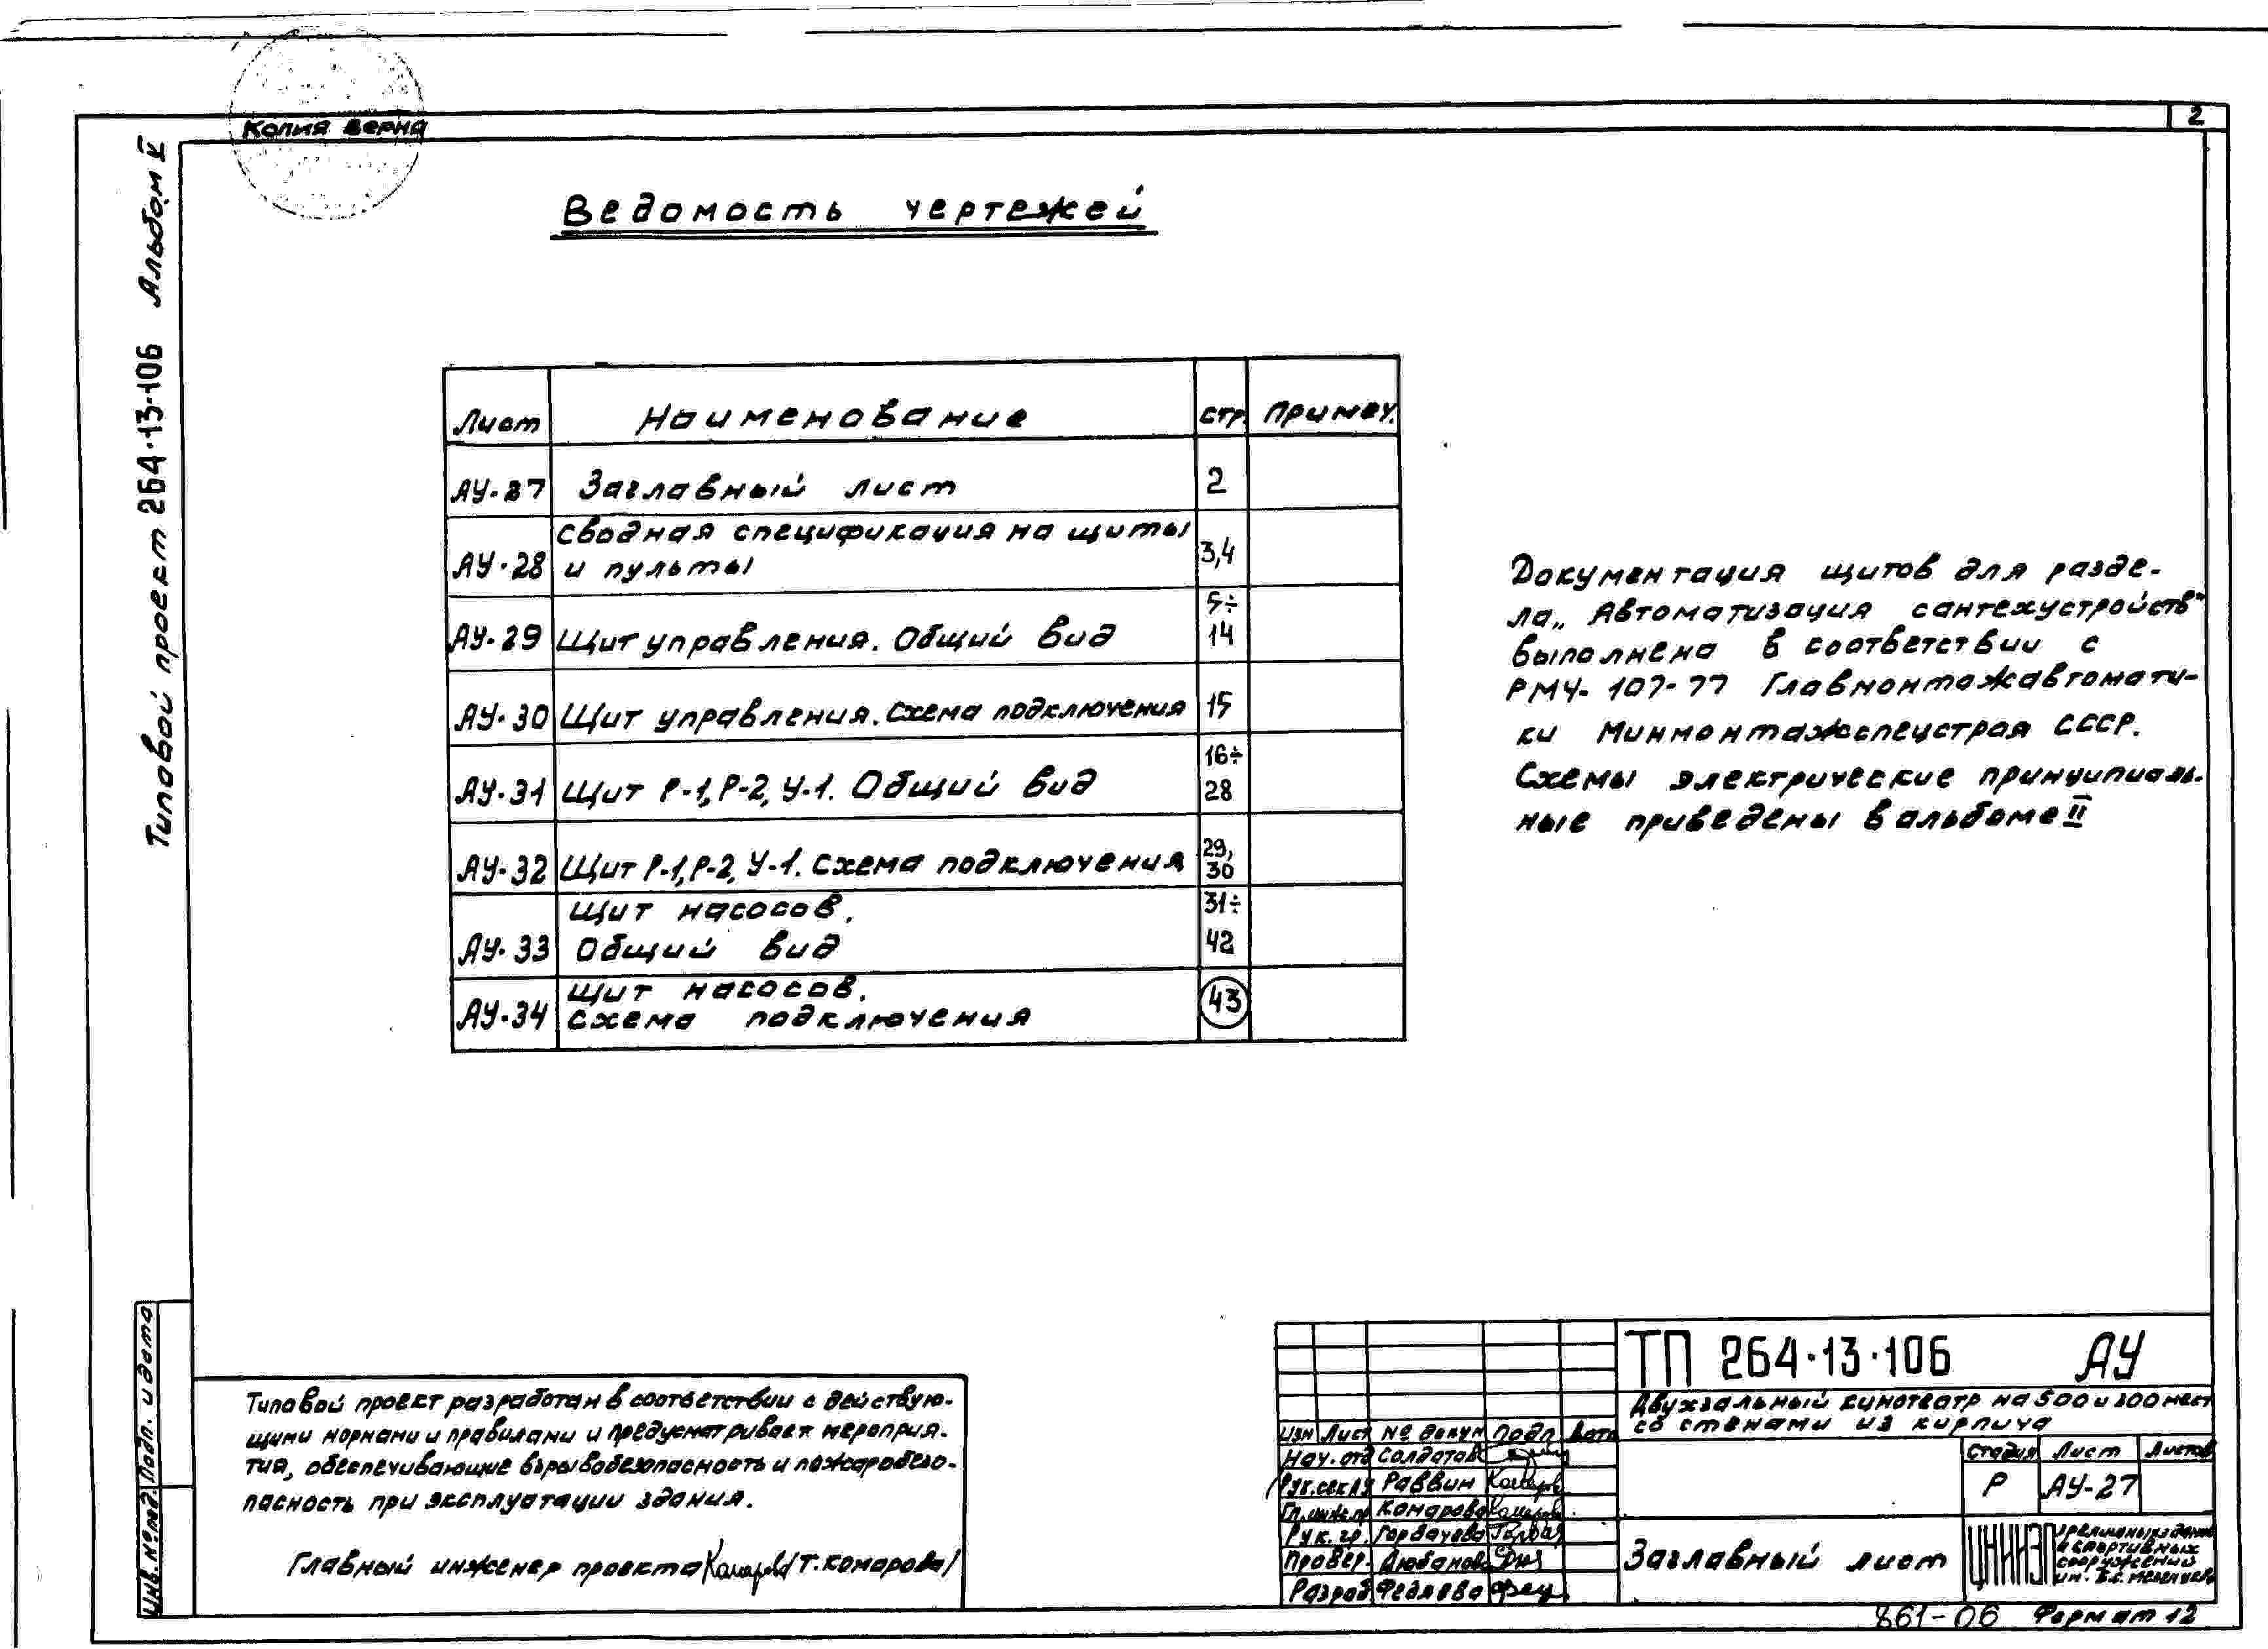 2
Копия верна
Типовой проект 264-13-106 Альбом V
Ведомость чертежей
Лист Наименование стр. Примеч.
АУ-27 Заглавный лист 2
АУ-28 Сводная спецификация на щиты и пульты 3,4
АУ-29 Щит управления. Общий вид 5÷14
АУ-30 Щит управления. Схема подключения 15
АУ-31 Щит Р-1, Р-2, У-1. Общий вид 16÷28
АУ-32 Щит Р-1, Р-2, У-1. Схема подключения 29, 30
АУ-33 Щит насосов. Общий вид 31÷42
АУ-34 Щит насосов. Схема подключения 43
Документация щитов для разде-
ла „Автоматизация сантехустройств"
выполнена в соответствии с
РМ4-107-77 Главмонтажавтомати-
ки Минмонтажспецстроя СССР.
Схемы электрические принципиаль-
ные приведены в альбоме II
Типовой проект разработан в соответствии с действую-
щими нормами и правилами и предусматривает мероприя-
тия, обеспечивающие взрывобезопасность и пожаробезо-
пасность при эксплуатации здания.
Главный инженер проекта /Т. Комарова/
Инв. № подл. Подп. и дата
ТП 264-13-106 АУ
Двухзальный кинотеатр на 500 и 300 мест
со стенами из кирпича
Изм Лист № докум Подп Дата
Нач. отд Солдатов
Рук. сек АУ Раввин
Гл. инж. пр Комарова
Рук. гр. Горбачева
Провер. Дюбанова
Разраб
Стадия Лист Листов
Р АУ-27
Заглавный лист
ЦНИИЭП зрелищных зданий
и спортивных
сооружений
им. Б.С. Мезенцева
861-06 Формат 12